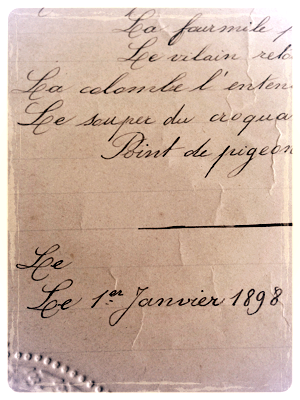 La fourmile
Le vilain reto
La colombe l'enten
Le souper du croqua
Point de pigeon
Le
Le 1er Janvier 1898